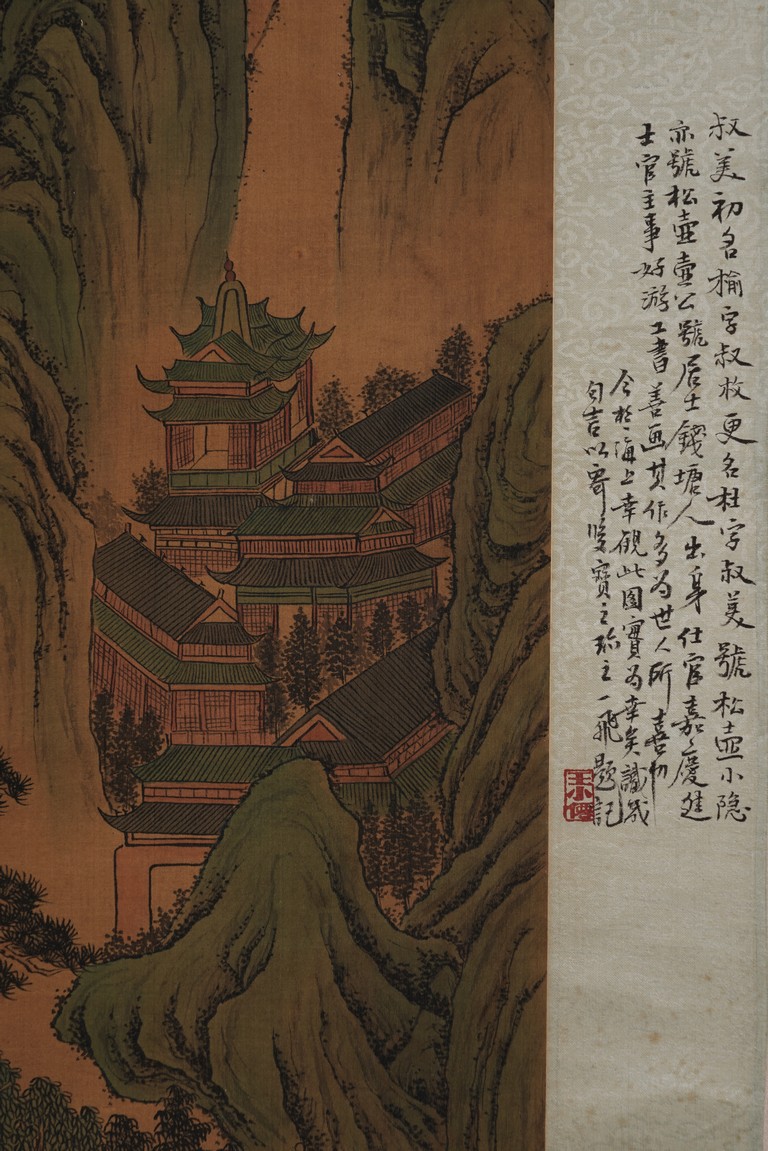 叔美初名榆字叔枚更名杜字叔美號松壺小隐
亦號松壺壺公號居士錢塘人出身仕官嘉慶進
士官主事好游工書善画其作多为世人所喜
今於海上幸觀此图實为幸矣識
句吉以寄後寶之珎之一飛題記